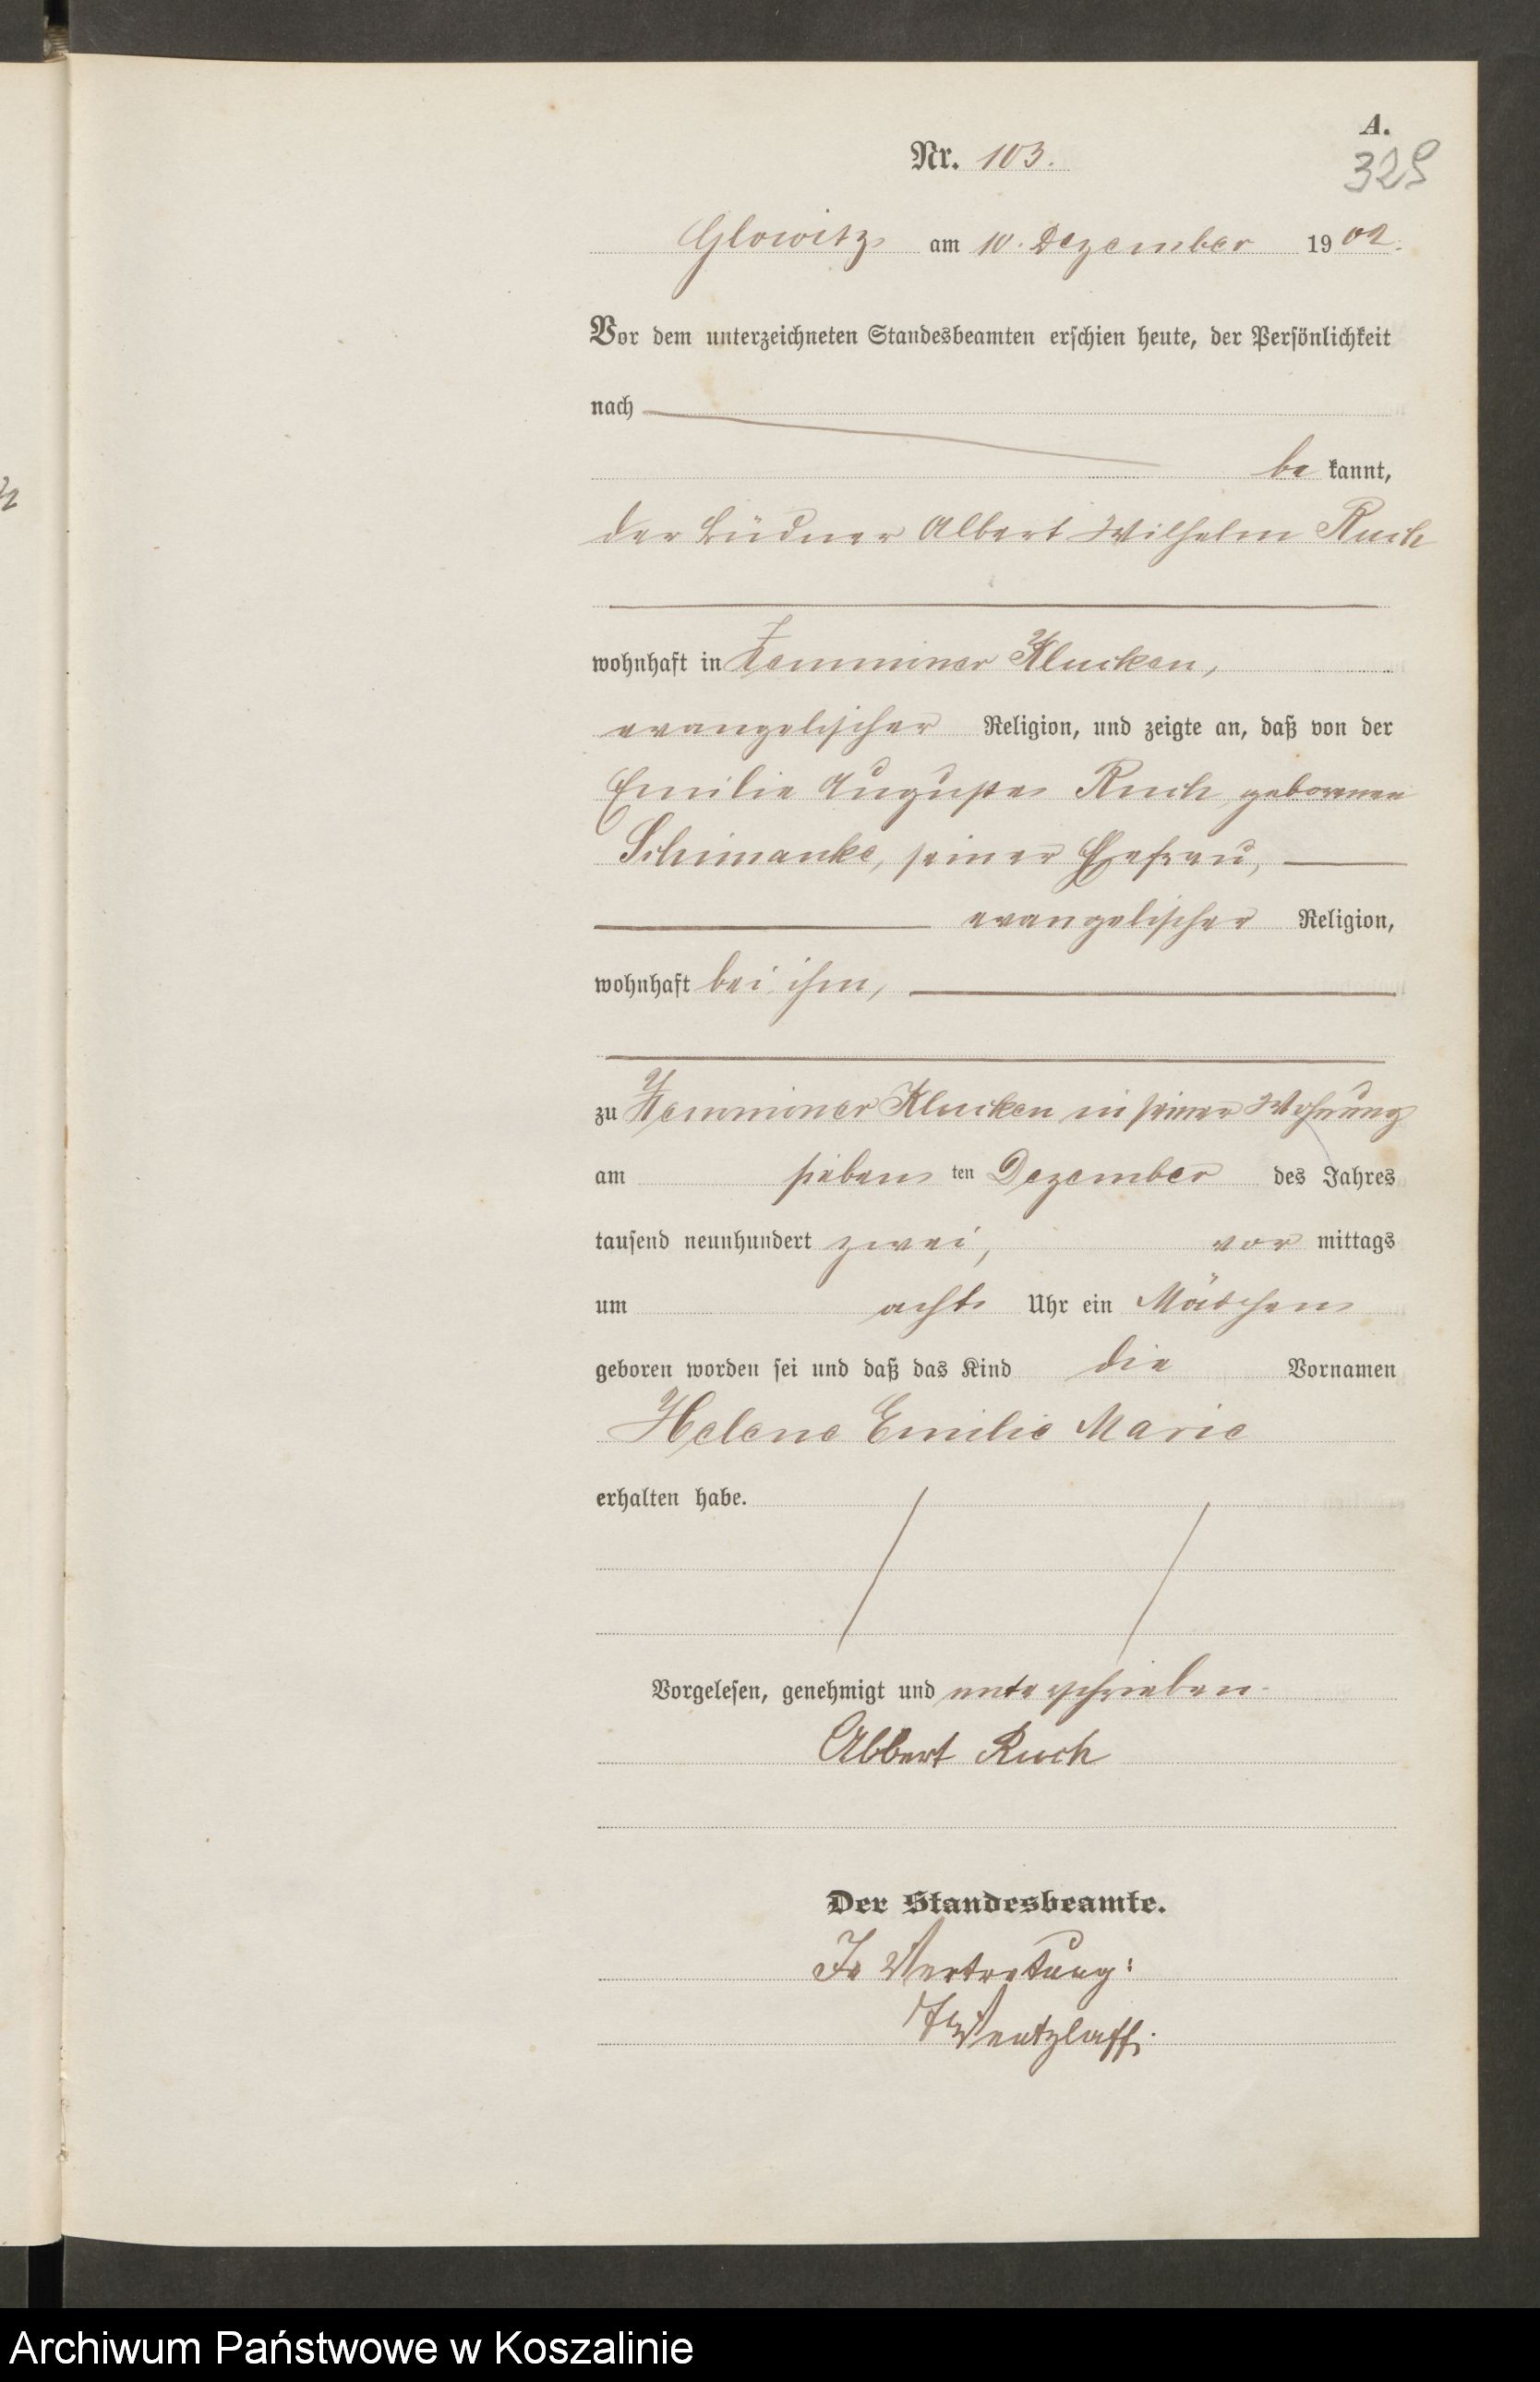 A.
Nr. 103.
329
Glowitz am 10. Dezember 1902.
Vor dem unterzeichneten Standesbeamten erschien heute, der Persönlichkeit
nach
be kannt,
der Büdner Albert Wilhelm Ruch
wohnhaft in Zemminer Klucken,
evangelischer Religion, und zeigte an, daß von der
Emilie Auguste Ruch geborenen
Schimanke, seiner Ehefrau,
evangelischer Religion,
wohnhaft bei ihm,
zu Zemminer Klucken in seiner Wohnung
am sieben ten Dezember des Jahres
tausend neunhundert zwei, vor mittags
um acht Uhr ein Mädchen
geboren worden sei und daß das Kind die Vornamen
Helene Emilie Marie
erhalten habe.
Vorgelesen, genehmigt und unterschrieben.
Albert Ruch
Der Standesbeamte.
In Vertretung:
Wentzlaff.
Archiwum Państwowe w Koszalinie